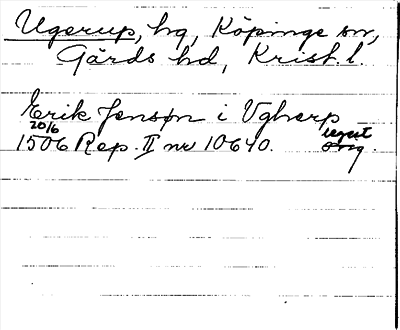 Ugerup, hg, Köpinge sn,
Gärds hd, Krist. l.
Erik Jensøn i Vgherp
20/6
1506 Rep. II nr 10640. orig.